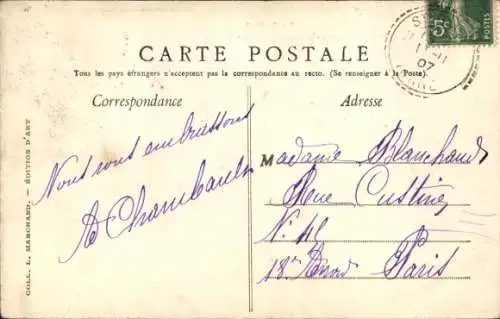 5c
POSTES
07
CARTE POSTALE
Tous les pays étrangers n'acceptent pas la correspondance au recto. (Se renseigner à la Poste).
Correspondance
Adresse
COLL. L. MARCHAND. — ÉDITION D'ART
Nous vous embrassons
Chambault
Madame Blanchaud
Rue Custine
N. 41
18e Paris